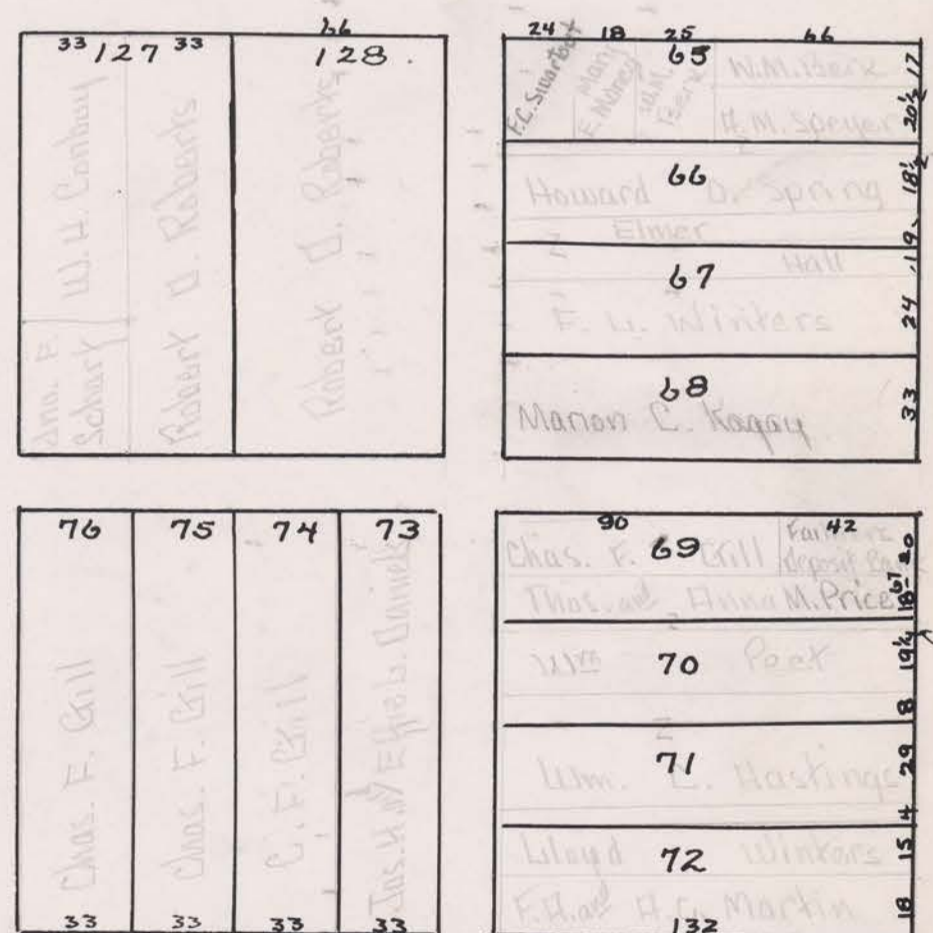 33 127 33
66
128.
Jno. F. Schart
W. H. Conbuy
Robert D. Roberts
Robert D. Roberts
24 18 25 66
65
F.C. Swartout
Mary E. Money
W.M. Berk
W.M. Berk
A.M. Speyer
17
20½
66
Howard D. Spring
18½
Elmer Hall
19
67
F. W. Winters
24
68
Marion C. Kagay
33
76
Chas. F. Grill
33
75
Chas. F. Grill
33
74
C. F. Grill
33
73
Jas. H. & Effie L. Daniels
33
90 42
69
Chas. F. Grill
Farmers deposit Bank
20
Thos. and Anna M. Price
18
67
70
Wm Peck
19¼
8
71
Wm. C. Hastings
29
4
72
Lloyd Winters
15
F.H. and H.G. Martin
18
132